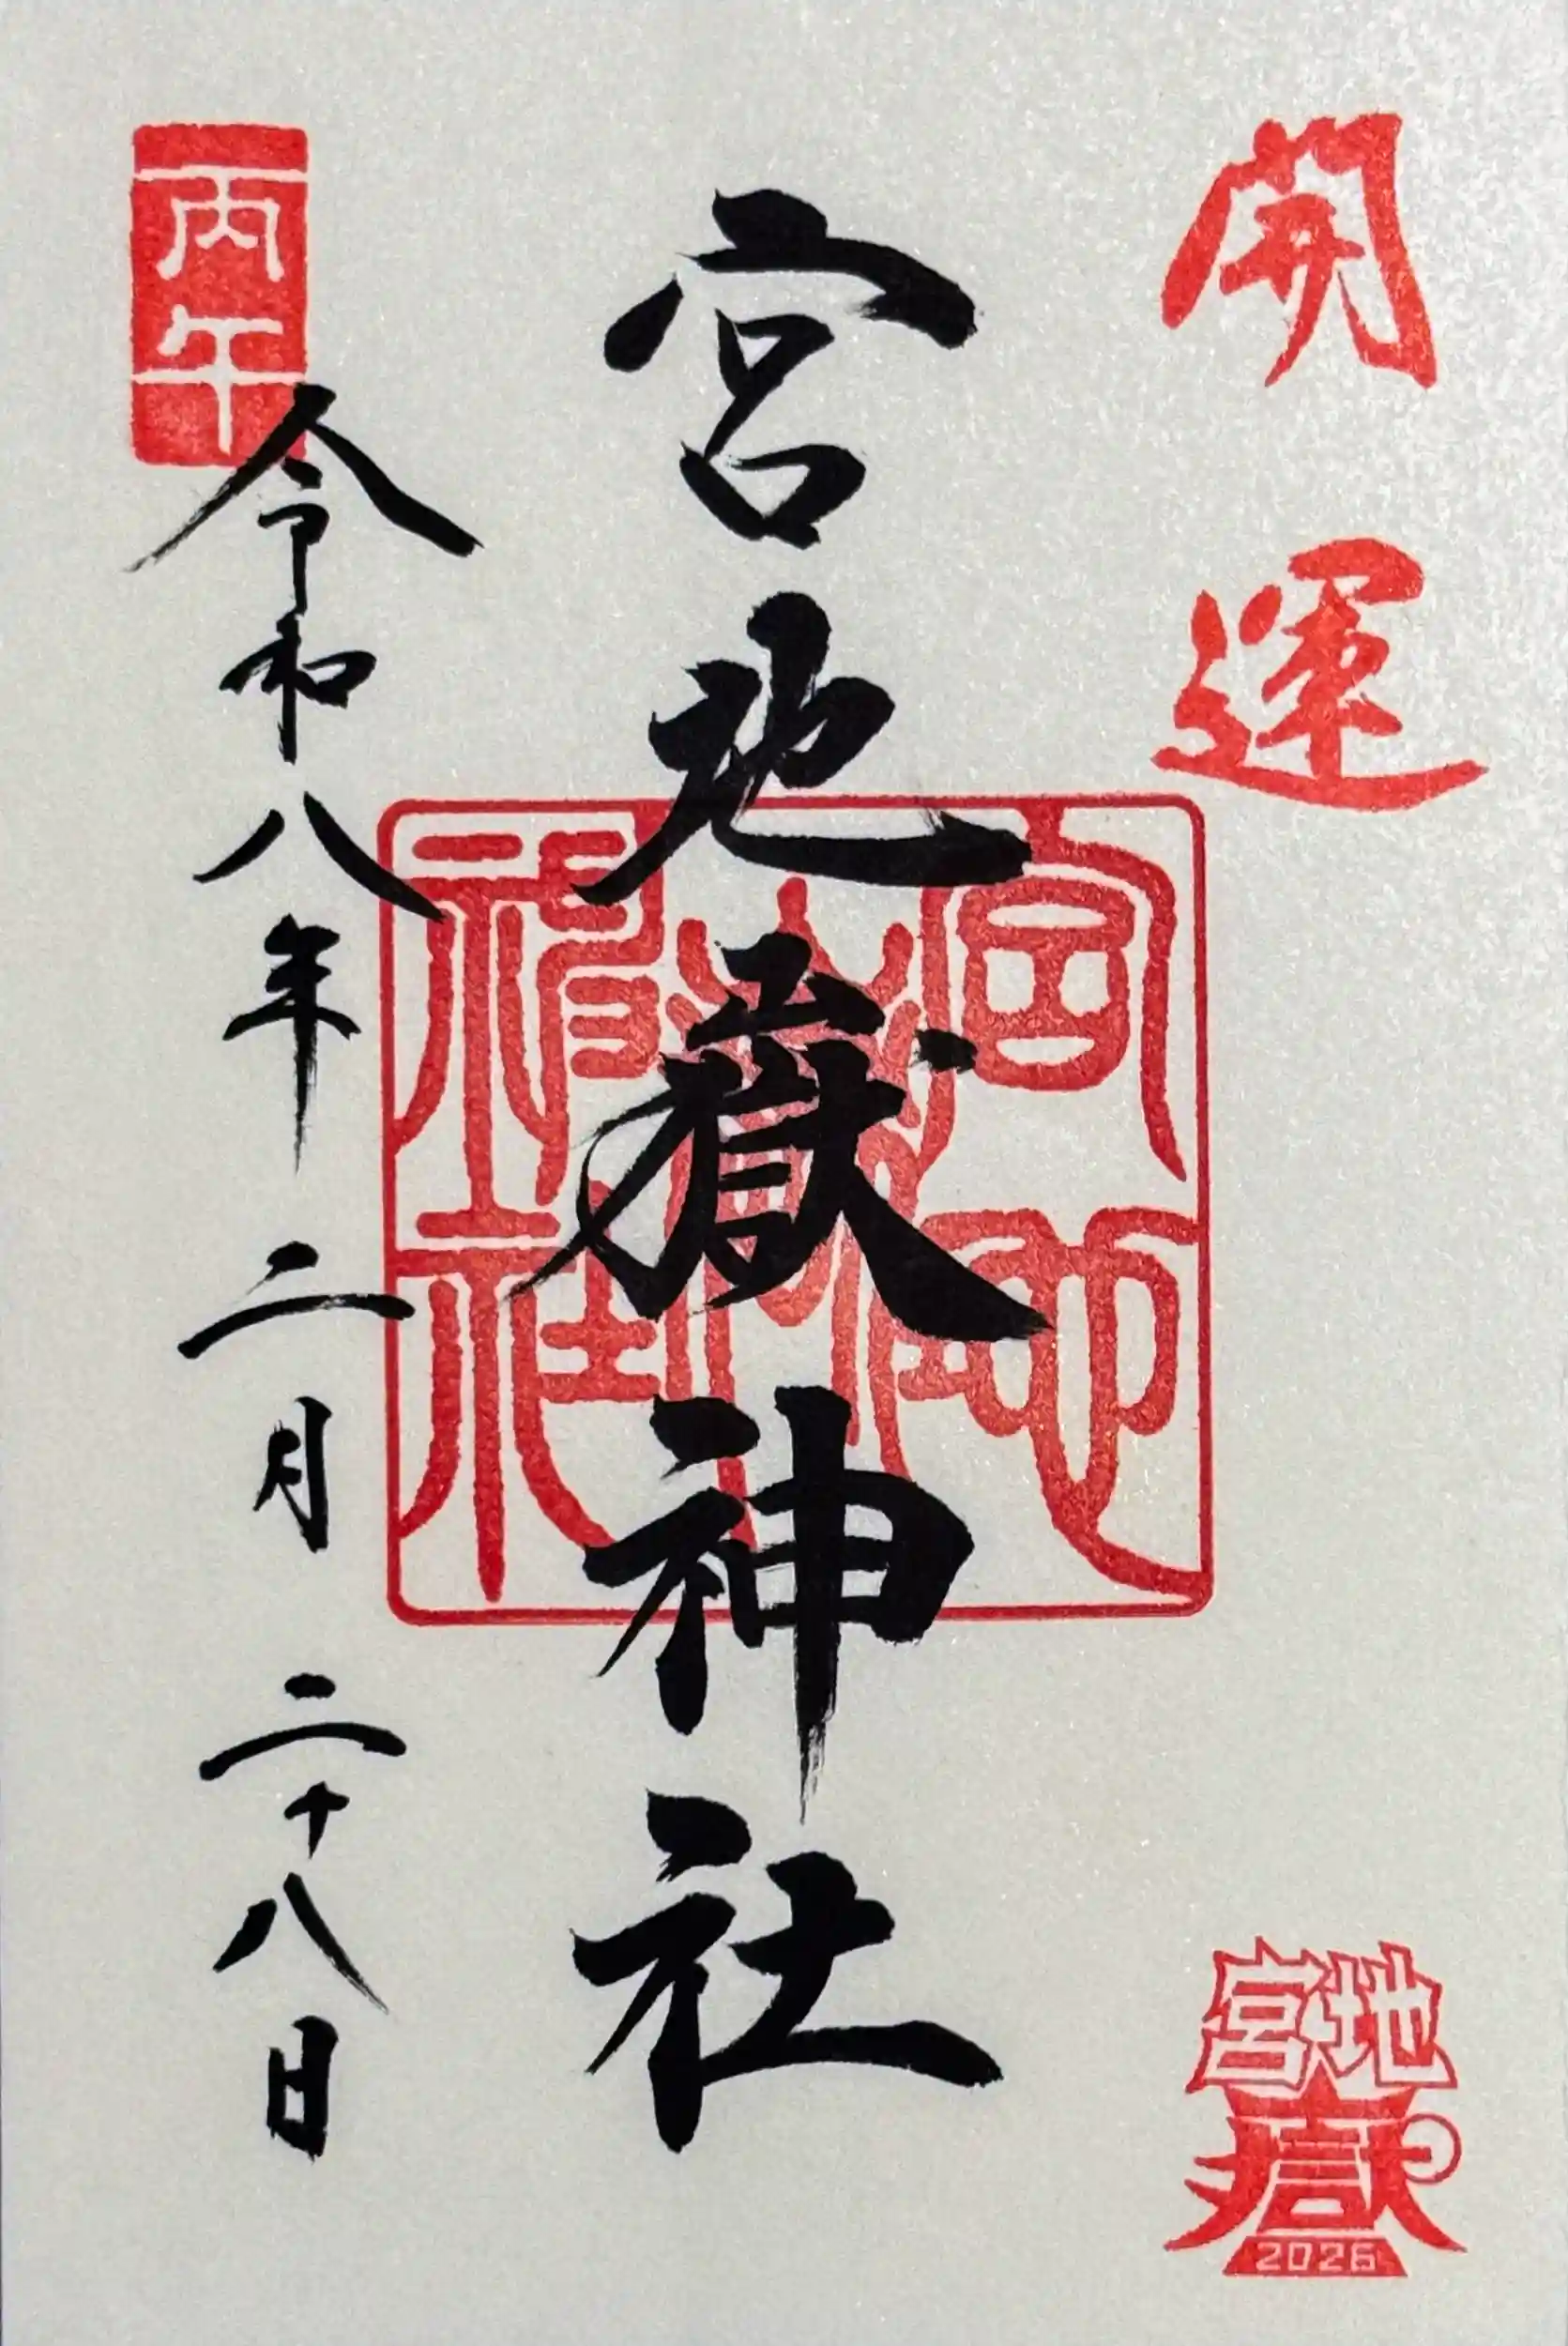 開運
宮地嶽
2026
宮地嶽神社
宮地嶽神社
丙午
令和八年二月二十八日